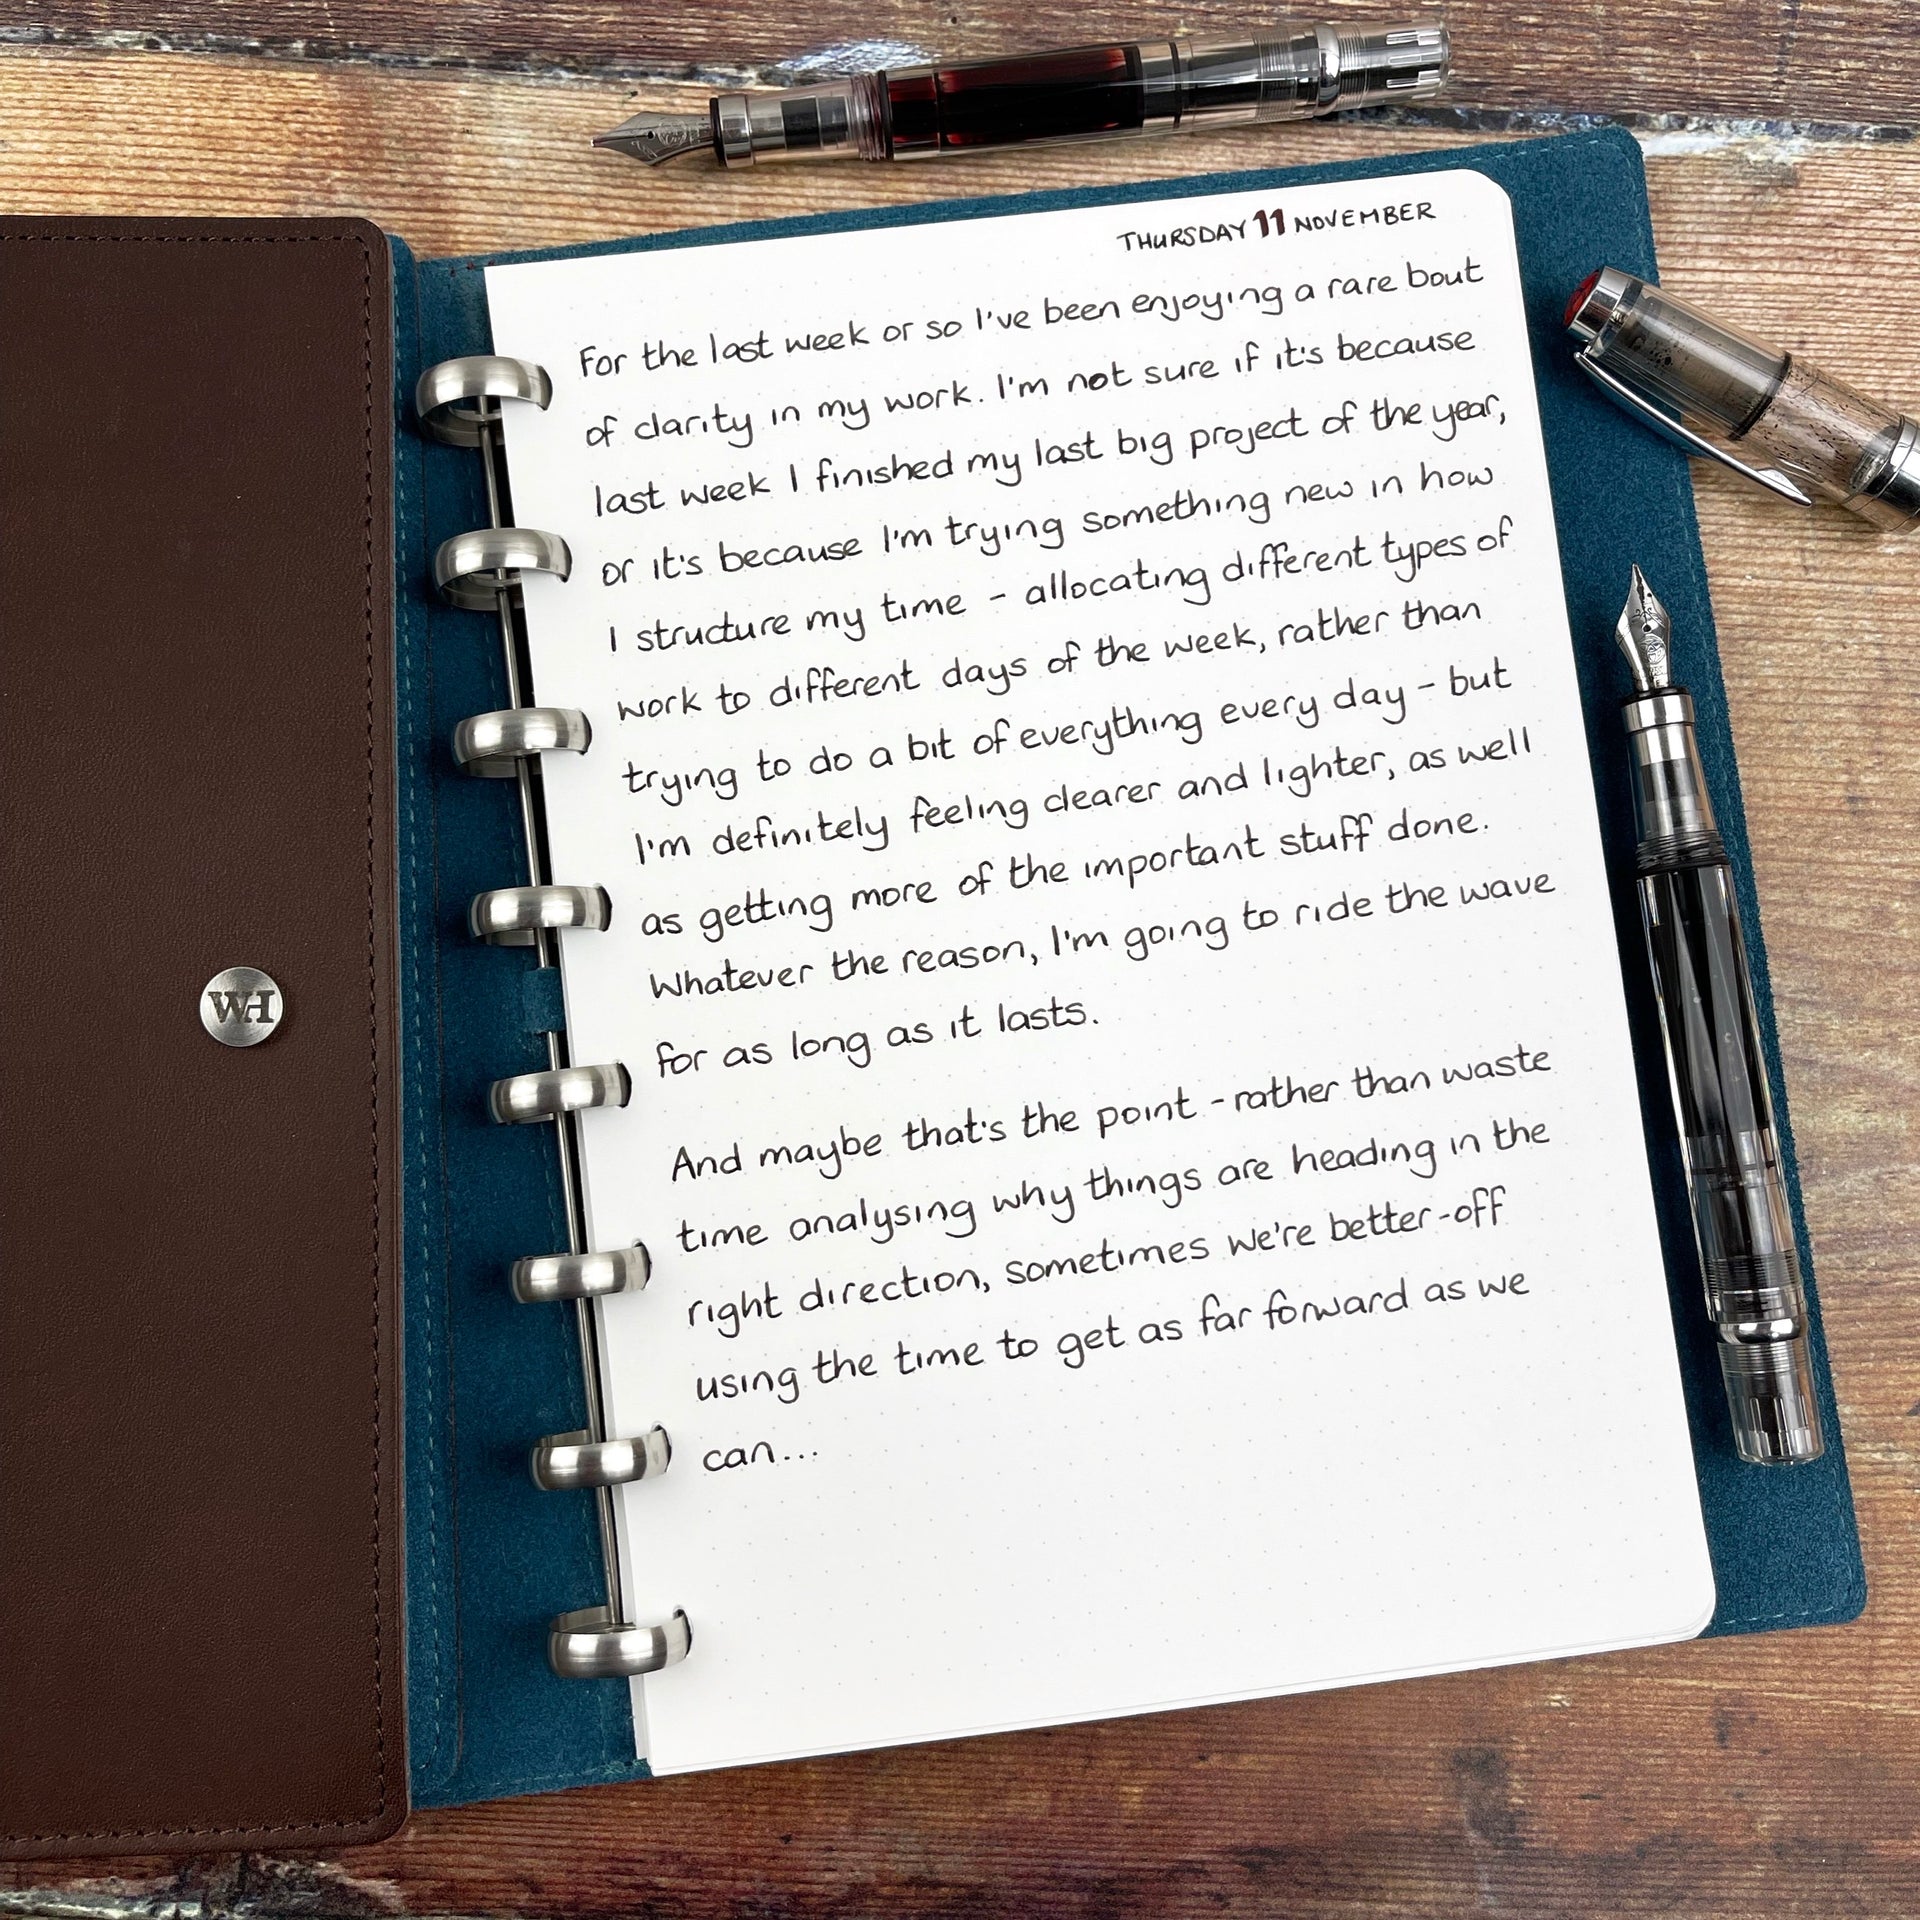 THURSDAY 11 NOVEMBER
For the last week or so I've been enjoying a rare bout
of clarity in my work. I'm not sure if it's because
last week I finished my last big project of the year,
or it's because I'm trying something new in how
I structure my time - allocating different types of
work to different days of the week, rather than
trying to do a bit of everything every day - but
I'm definitely feeling clearer and lighter, as well
as getting more of the important stuff done.
Whatever the reason, I'm going to ride the wave
for as long as it lasts.
And maybe that's the point - rather than waste
time analysing why things are heading in the
right direction, sometimes we're better-off
using the time to get as far forward as we
can...
WH